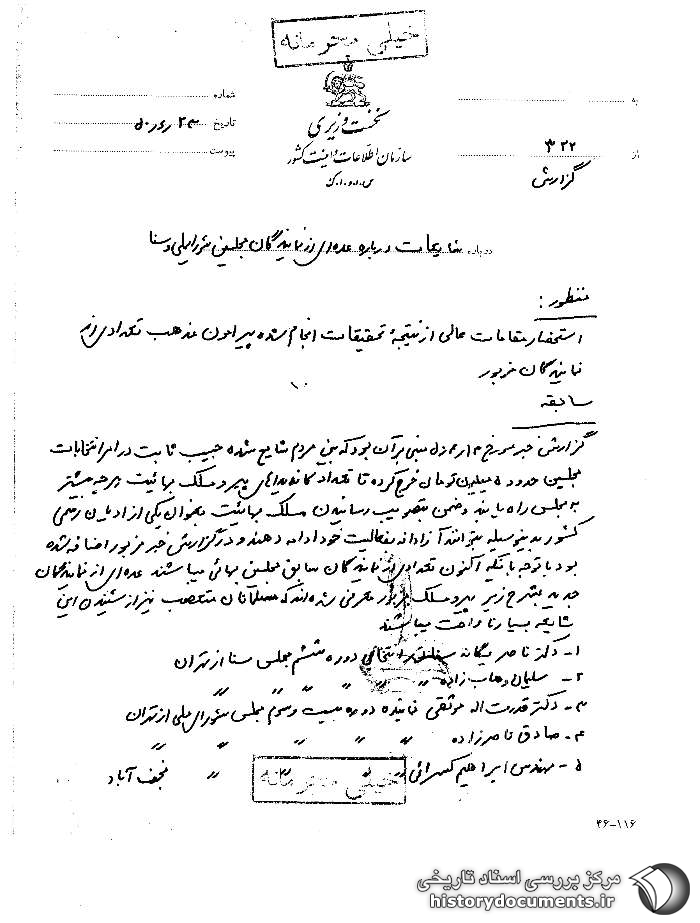 خیلی محرمانه
به
شماره
نخست وزیری
تاریخ
از ۳۲۲
سازمان اطلاعات و امنیت کشور
پیوست
س.ا.و.ا.ک
گزارش
درباره شایعات درباره عده‌ای از نمایندگان مجلسین شورایملی و سنا
منظور :
استحضار مقامات عالی از نتیجه تحقیقات انجام شده پیرامون مذهب تعدادی از
نمایندگان مزبور
سابقه
گزارش خبر مورخ مبنی بر آن بود که بین مردم شایع شده حبیب ثابت در امر انتخابات
مجلسین حدود ۵ میلیون تومان خرج کرده تا تعداد کاندیداهای پیرو مسلک بهائیت هر چه بیشتر
به مجلس راه یابند و ضمن بتصویب رسانیدن مسلک بهائیت بعنوان یکی از ادیان رسمی
کشور بدینوسیله بتوانند آزادانه بفعالیت خود ادامه دهند و در گزارش خبر مزبور اضافه شده
بود با توجه باینکه اکنون تعدادی از نمایندگان سابق مجلسین بهائی میباشند عده‌ای از نمایندگان
جدید بشرح زیر پیرو مسلک مزبور معرفی شده‌اند که مسلمانان متعصب نیز از شنیدن این
شایعه بسیار ناراحت میباشند
۱- دکتر ناصر یگانه سناتور انتخابی دوره ششم مجلس سنا از تهران
۲- سلیمان وهاب زاده " " " " "
۳- دکتر قدرت اله موثقی نماینده دوره بیست و سوم مجلس شورای ملی از تهران
۴- صادق ناصرزاده " " " " "
۵- مهندس ابراهیم کسرائی " " " نجف آباد
خیلی محرمانه
۴۶-۱۱۶
مرکز بررسی اسناد تاریخی
historydocuments.ir